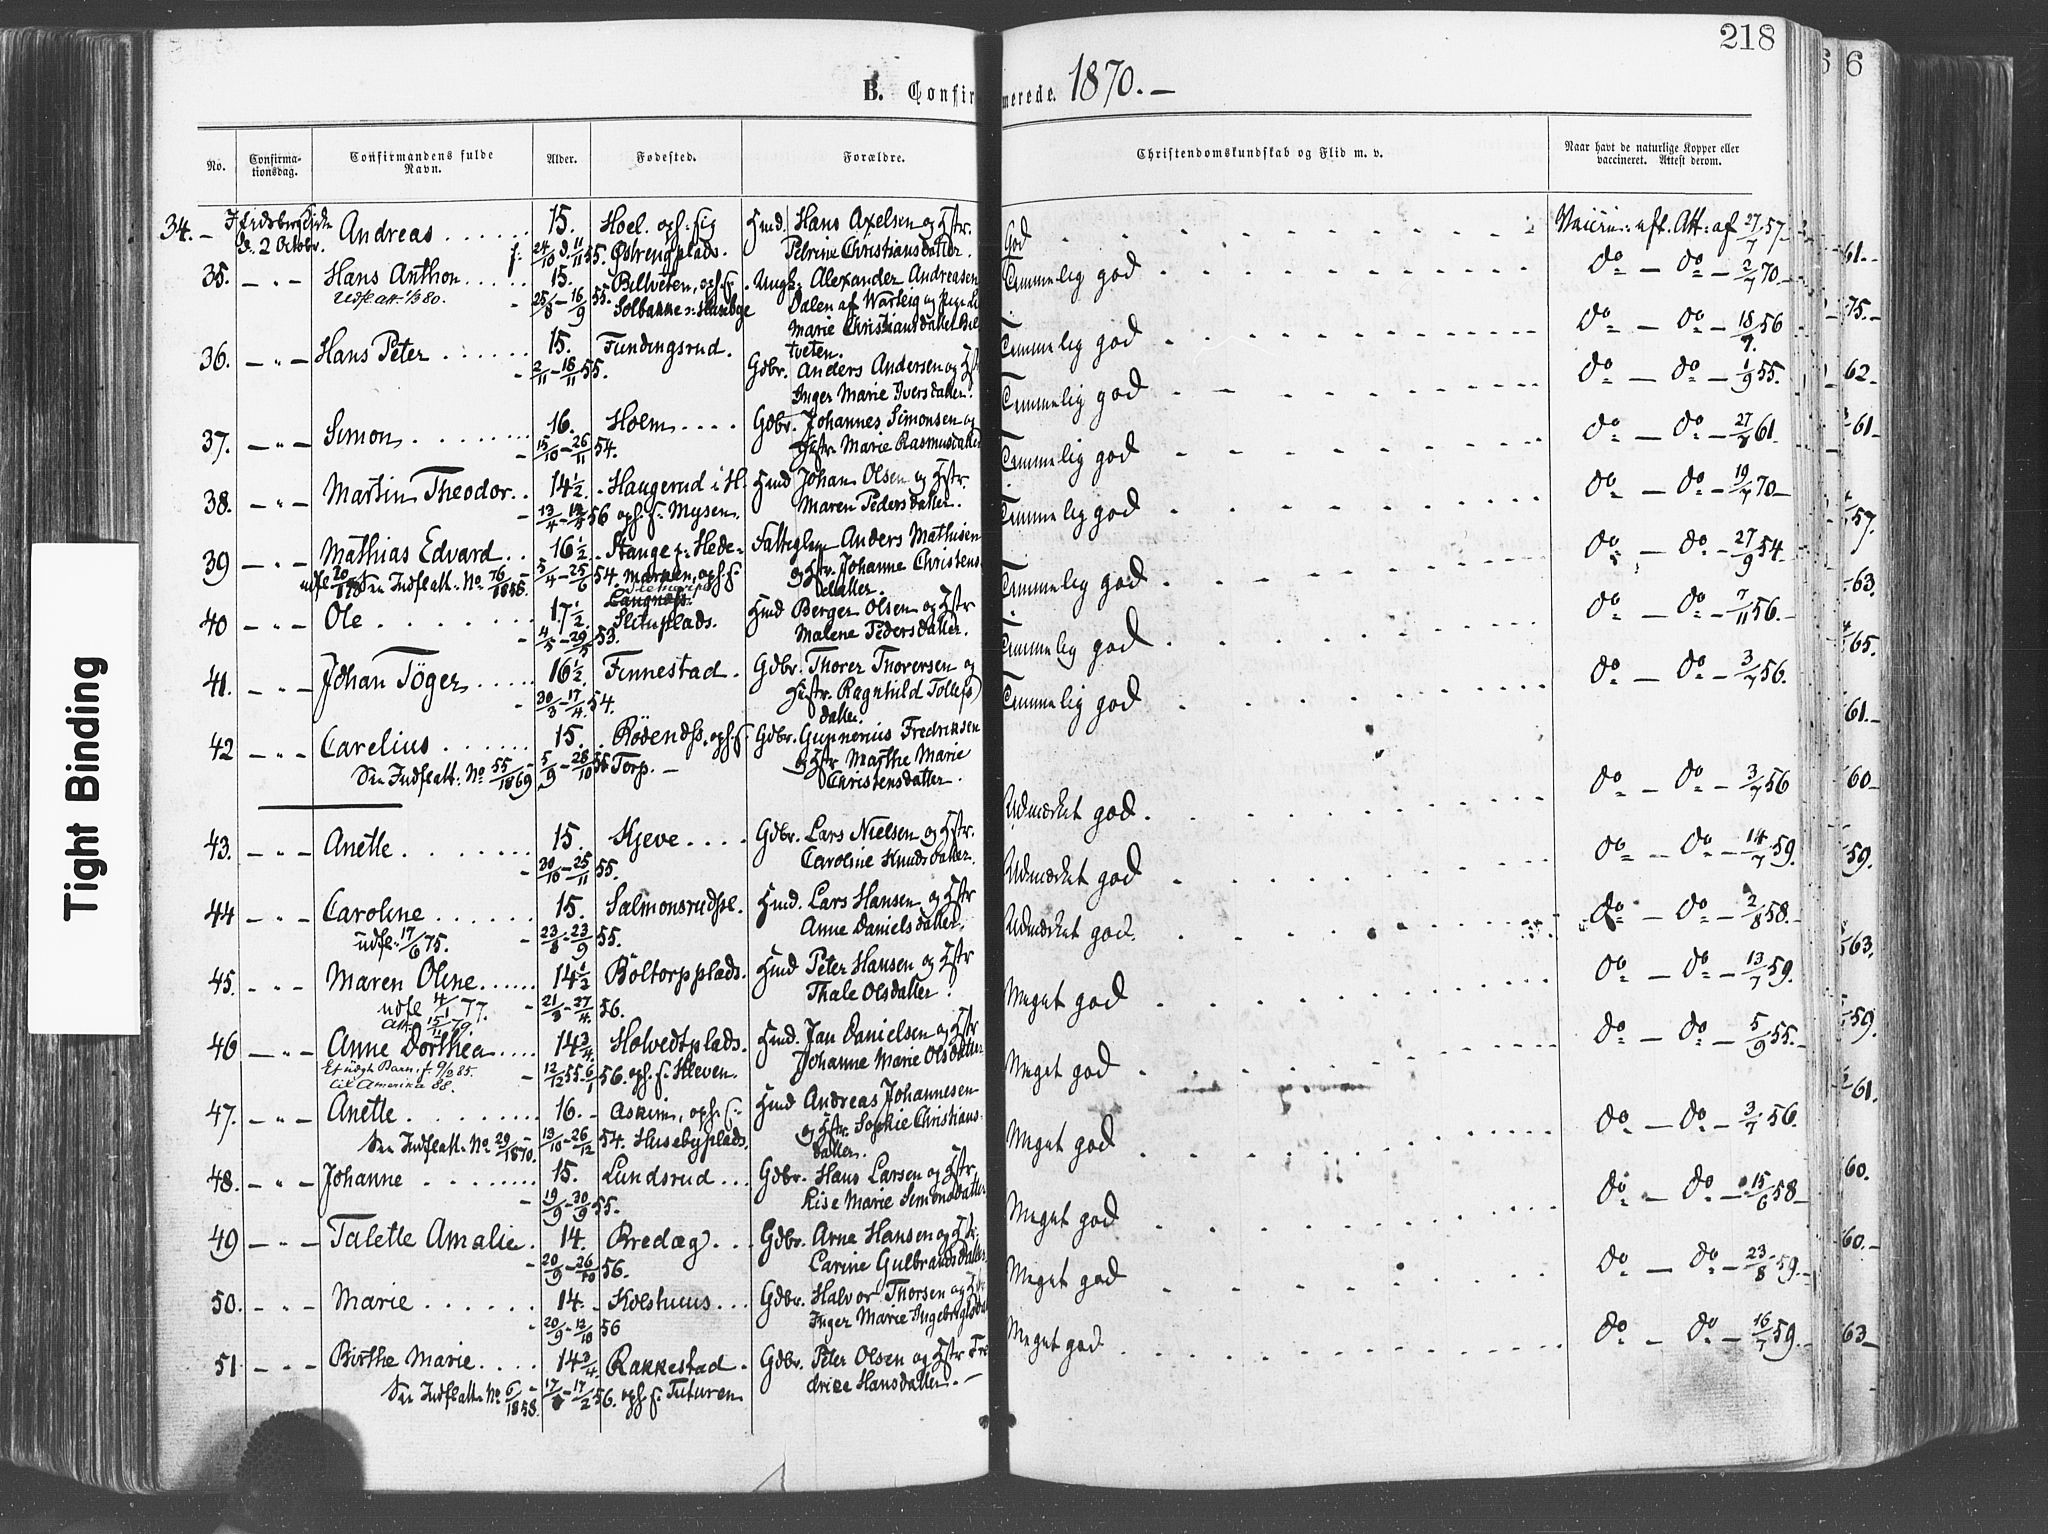 218
6
B. Confirmerede. 1870. —
No.
Confirma-
tionsdag.
Confirmandens fulde
Navn.
Alder.
Fødested.
Forældre.
Christendomskundskab og Flid m. v.
Naar havt de naturlige Kopper eller
vaccineret. Attest derom.
Tight Binding
34. — d. 2 Octobr. Andreas 15. Hoel. oph. Hmd. Hans Axelsen og Hstr. God Vaccin: eft. Att: af 27/7 57
24/10 d. 11/11 55. Østrengplads. Petrine Christiansdatter.
35. — " — Hans Anthon 15. Biltveten, oph. f. Ungk. Alexander Andreasen Temmelig god do — do — 2/7 70
25/8 — 16/9 55. Solbakke Dalen af Varteig og Pige
Marie Christiansdatter Bil-
tveten.
36. — " — Hans Peter 15. Fundingsrud. Gdbr. Anders Andersen og Hstr Temmelig god do — do — 18/7 56
2/11 — 18/11 55. Inger Marie Iversdatter.
37. — " — Simon 16. Holm Gdbr. Johannes Simonsen og Temmelig god do — do — 1/9 55.
15/10 — 26/11 54. Hstr. Marie Rasmusdatter
38. — " — Martin Theodor 14½. Haugerud i H. Hmd Johan Olsen og Hstr. Temmelig god do — do — 27/8 61
13/4 — 56 oph. f. Mysen. Maren Pedersdatter.
39 — " — Mathias Edvard 16½. Stange p. Hede- Anders Mathisen Temmelig god do — do — 19/7 70
Indflatt. No. 76/1855. 5/4 — 25/6 54. marken, oph. f. og Hstr. Johanne Christens-
datter.
40 — " — Ole 17½. Slituplads. Hmd Berger Olsen og Hstr Temmelig god do — do — 27/9 54
4/5 — 29/5 53. Malene Pedersdatter.
41. — " — Johan Töger 16½ Finnestad. Gdbr. Thorer Thorersen og Temmelig god do — do — 7/11 56.
30/3 — 17/4 54. Hstr. Ragnhild Tollefs-
datter.
42 — " — Carelius 15. Rödends, oph. f. Gdbr. Gunnerius Fredriksen Temmelig god do — do — 3/7 56.
Indflatt. No 55/1869 5/9 — 28/10 55 Torp. — og Hstr Marthe Marie
Christensdatter.
43. — " — Anette 15. Skjeve Gdbr. Lars Nielsen og Hstr. Udmærket god do — do — 3/7 56
30/10 — 25/11 55. Caroline Knudsdatter.
44 — " — Caroline 15. Salmonsrudpl. Hmd. Lars Hansen og Hstr Udmærket god do — do — 14/7 59.
udfl. 17/6 75. 23/8 — 23/9 55. Anne Danielsdatter.
45. — " — Maren Oline 14½ Böltorpplads. Hmd Peter Hansen og Hstr Udmærket god do — do — 2/8 58.
udfl 4/1 77. 21/3 — 27/4 56. Thale Olsdatter.
Att. 15/11 79.
46 — " — Anne Dorthea 14¾ Holvedtplads. Hmd. Jan Danielsen og Hstr Meget god do — do — 13/7 59.
Et uægt Barn f. 9/2 85. 12/12 55. 6/1 56. oph. f. Kleven. Johanne Marie Olsdatter
til Amerika 88.
47. — " — Anette 16. Askim, oph. f. Hmd Andreas Johannesen Meget god do — do — 5/9 55.
Indflatt. No 29/1870. 13/10 — 26/12 54. Husebyplads. og Hstr. Sophie Christians-
datter.
48. — " — Johanne 15. Lundsrud Gdbr. Hans Larsen og Hstr. Meget god do — do — 3/7 56.
19/9 — 30/9 55. Lise Marie Simonsdatter
49 — " — Talette Amalie 14. Bredæg Gdbr. Arne Hansen og Hstr. Meget god do — do — 15/6 58
20/9 — 26/10 56. Carine Gulbrandsdatter
50. — " — Marie 14. Kolshuus Gdbr. Halvor Thorsen og Meget god do — do — 23/8 59.
20/9 — 12/10 56 Inger Marie
51 — " — Birthe Marie 14¾ Rakkestad Gdbr. Peter Olsen og Hstr Fre- Meget god do — do — 16/7 59.
Indflatt. No 6/1858. 17/2 56. oph. f. Tuturen drice Hansdatter. —
61.
75.
62
61
57.
63
65.
61.
60
59.
63.
59
61
60.
60.
63